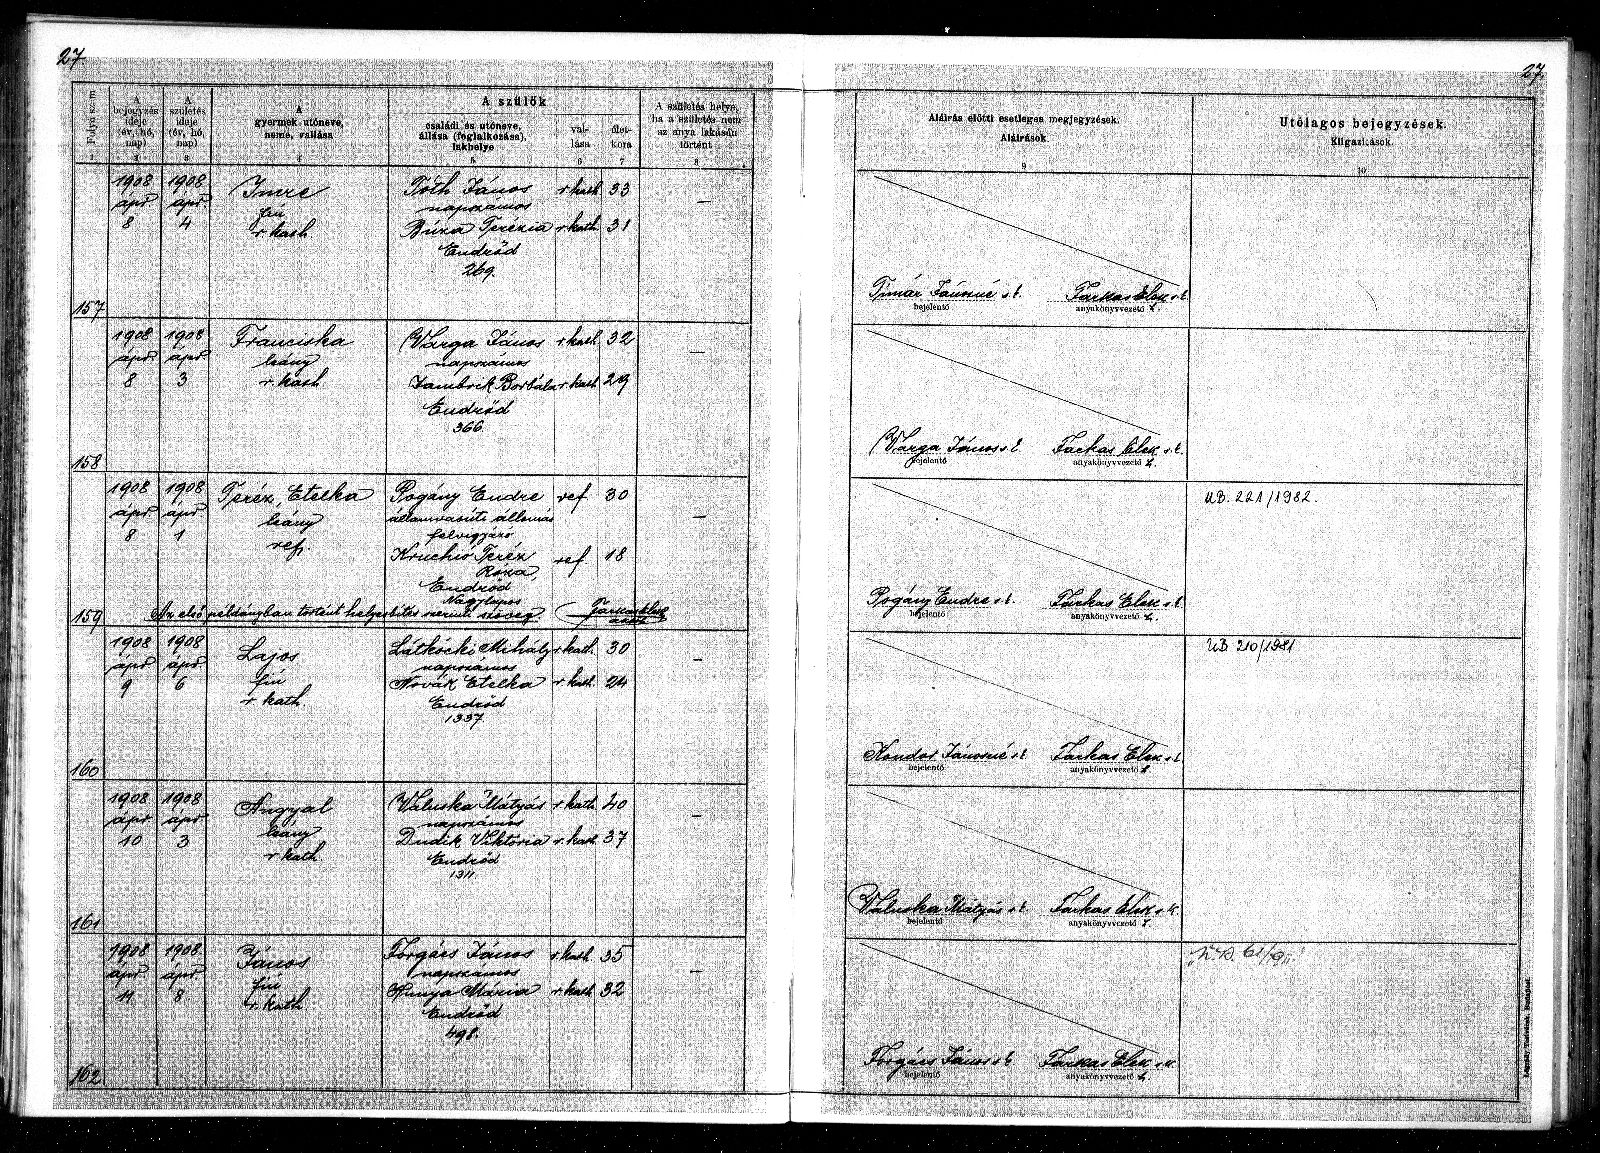 27
27
Folyó szám
A bejegyzés ideje (év, hó, nap)
A születés ideje (év, hó, nap)
A gyermek utóneve, neme, vallása
A szülők
családi és utóneve, állása (foglalkozása), lakhelye
vallása
életkora
A születés helye, ha a születés nem az anya lakásán történt
Aláírás előtti esetleges megjegyzések.
Aláírások.
Utólagos bejegyzések.
Kiigazítások.
1 2 3 4 5 6 7 8 9 10
1908 1908 Imre Tóth János r. kath 33
ápr ápr fiú napszámos —
8 4 r. kath. Búza Terézia r. kath. 31
Endrőd
269.
Timár Jánosné s. k. Farkas Elek s. k.
bejelentő anyakönyvvezető h.
157
1908 1908 Franciska Varga János r. kath. 32
ápr ápr leány napszámos —
8 3 r. kath. Jambrik Borbála r. kath. 29
Endrőd
366.
Varga János s. k. Farkas Elek s. k.
bejelentő anyakönyvvezető h.
158
1908 1908 Teréz, Etelka Pogány Endre ref 30 UB. 221/1982.
ápr ápr leány államvasúti állomás —
8 1 ref. felvigyázó
Kruchió Teréz ref. 18
Róza
Endrőd
Nagylapos
Pogány Endre s. k. Farkas Elek s. k.
bejelentő anyakönyvvezető h.
159 Az első példányban történt helyesbítés szerinti szöveg. Farkas Elek
1908 1908 Lajos Látkóczki Mihály r. kath. 30 UB 210/1981
ápr ápr. fiú napszámos —
9 6 r. kath. Novák Etelka r. kath. 24
Endrőd
1337.
Kondor Jánosné s. k. Farkas Elek s. k.
bejelentő anyakönyvvezető h.
160
1908 1908 Angyal Valuska Mátyás r. kath. 40
ápr ápr leány napszámos —
10 3 r. kath. Dudik Viktória r. kath. 37
Endrőd
1311.
Valuska Mátyás s. k. Farkas Elek s. k.
bejelentő anyakönyvvezető h.
161
1908 1908 János Forgács János r. kath. 35
ápr ápr. fiú napszámos —
11 8 r. kath. Hunya Mária r. kath. 32
Endrőd
498.
Forgács János s. k. Farkas Elek s. k.
bejelentő anyakönyvvezető h.
162